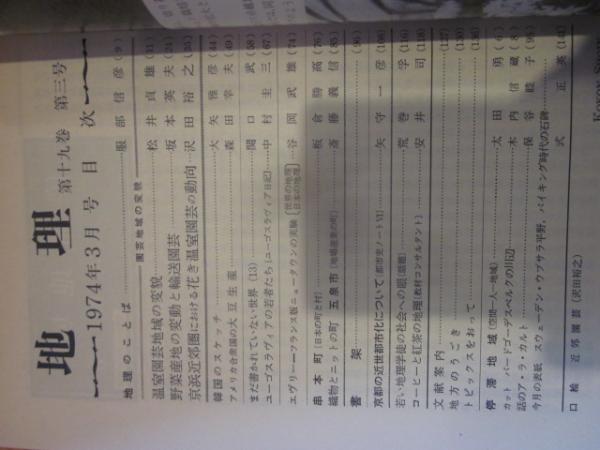 地理 第十九巻 第三号
1974年3月号 目次
地理のことば 服部信彦 (9)
園芸地域の変貌
温室園芸地域の変貌 松井貞雄 (11)
野菜産地の変動と輸送園芸 坂本英夫 (24)
京浜近郊圏における花き温室園芸の動向 沢田裕之 (35)
韓国のスケッチ 大矢雅彦 (44)
アメリカ合衆国の大豆生産 森田幸夫 (49)
まだ書かれていない世界 (13) 関口武 (58)
ユーゴスラヴィアの若者たち〔ユーゴスラヴィア日記〕 中村圭三 (67)
エヴリー―フランス版ニュータウンの実験 〔世界の地理 日本の地理〕 谷岡武雄 (74)
串本町〔日本の町と村〕 板倉勝高 (76)
織物とニットの町 五泉市〔地場産業の町〕 斎藤義信 (85)
書架 (94)
京都の近世都市化について〔都市史ノートVI〕 矢守一彦 (106)
若い地理学徒の社会への眼〔書簡〕 荒巻孚 (116)
コーヒーと紅茶の地理〔教材コンサルタント〕 安井司 (118)
文献案内 (127)
地方のうごき (130)
トピックスをおって (136)
停滞地域〔空間―人―地域〕 太田勇 (6)
カット バードゴーデスベルクの川辺 木内信蔵 (8)
話のア・ラ・カルト 保谷睦子 (99)
今月の表紙 スウェーデン・ウプサラ平野、バイキング時代の石碑 式正英 (140)
口絵 近郊園芸 (沢田裕之)